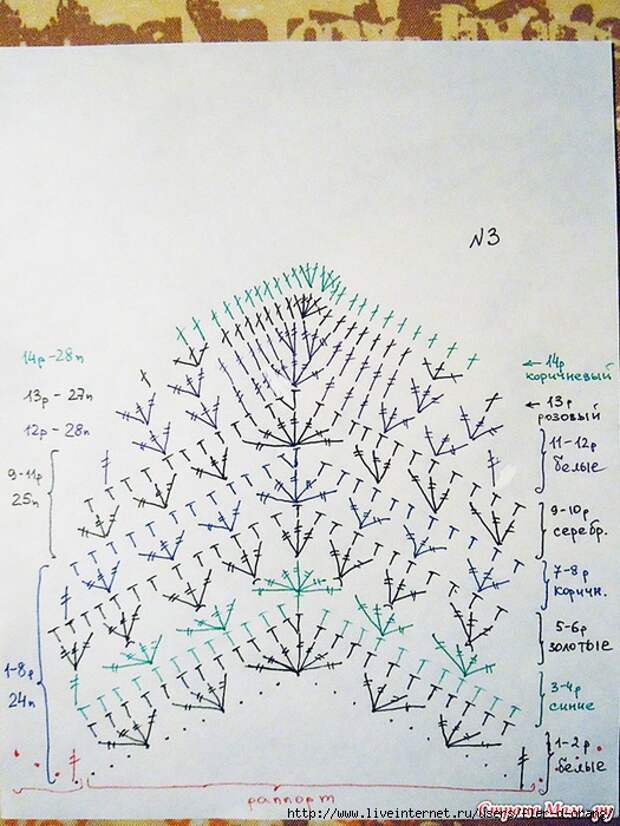 N3
14р-28п
13р-27п
12р-28п
9-11р
25п
1-8р
24п
← 14р
коричневый
← 13р
розовый
11-12р
белые
9-10р
серебр.
7-8р
коричн.
5-6р
золотые
3-4р
синие
1-2р
белые
раппорт
Страна Мам.ру